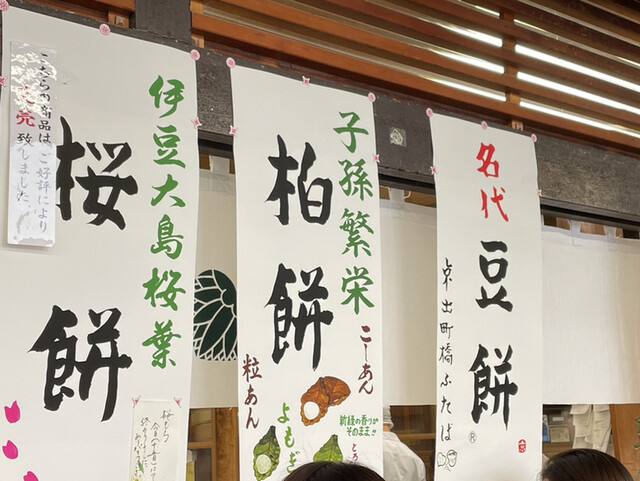 名代
豆餅
出町橋ふたば
®
子孫繁栄
柏餅
こしあん
粒あん
よもぎ
新種の香りが
そのまま!!
伊豆大島桜葉
桜餅
こちらの商品はご好評により
完売致しました。